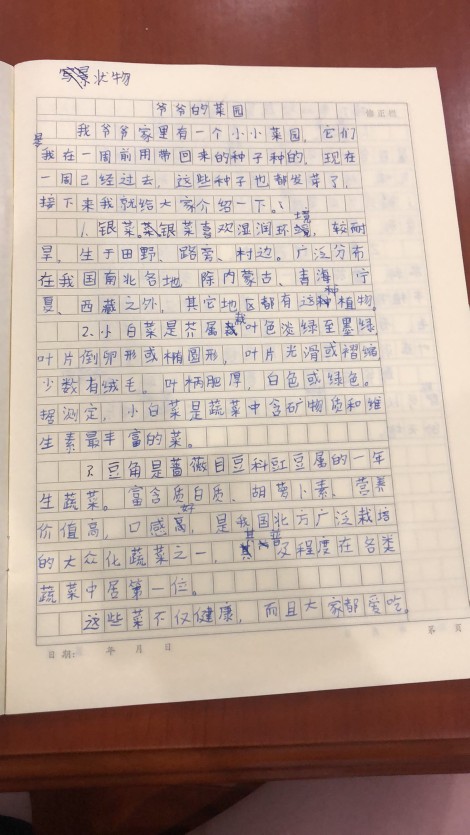 状物
爷爷的菜园
修正栏
我爷爷家里有一个小小菜园，它们
是
我在一周前用带回来的种子种的，现在
一周已经过去，这些种子也都发芽了，
接下来我就给大家介绍一下。
1.银菜 银菜喜欢湿润环境，较耐
旱。生于田野、路旁、村边。广泛分布
在我国南北各地，除内蒙古、青海、宁
夏、西藏之外，其它地区都有这种植物。
2.小白菜是芥属 栽 叶色淡绿至墨绿，
叶片倒卵形或椭圆形，叶片光滑或褶缩，
少数有绒毛。叶柄肥厚，白色或绿色。
据测定，小白菜是蔬菜中含矿物质和维
生素最丰富的菜。
3.豆角是蔷薇目豆科豇豆属的一年
生蔬菜。富含质白质、胡萝卜素，营养
价值高，口感好，是我国北方广泛栽培
的大众化蔬菜之一，其普及程度在各类
蔬菜中居第一位。
这些菜不仅健康，而且大家都爱吃。
日期： 年 月 日 第 页